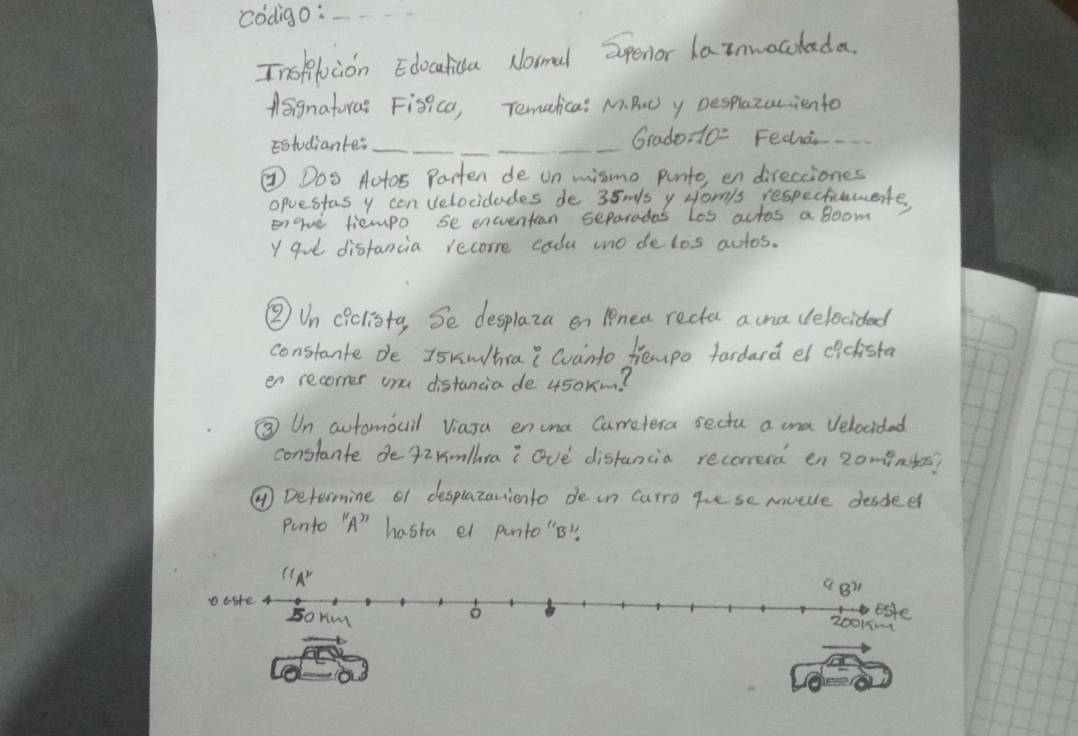 Código: - - - -
Institución Educativa Normal Superior La Inmaculada.
Asignatura: Física, Tematica: M.R.U y Desplazamiento
Estudiante: __ __ _ __ __ Grado: 10º Fecha: - - - -
① Dos Autos Parten de un mismo punto, en direcciones
opuestas y con velocidades de 35m/s y 40m/s respectivamente,
en qué tiempo se encuentran separados Los autos a 800m
y qué distancia recorre cada uno de los autos.
② Un ciclista, Se desplaza en línea recta a una velocidad
constante De 15Km/hra ¿ Cuánto tiempo tardará el ciclista
en recorrer una distancia de 450Km?
③ Un automóvil Viaja en una Carretera recta a una Velocidad
constante de 72Km/hra ¿ Qué distancia recorrerá en 20 minutos?
④ Determine el desplazamiento De un Carro que se mueve desde el
Punto "A" hasta el punto "B".
"A" "B"
oeste Este
50 Km 0 200Km